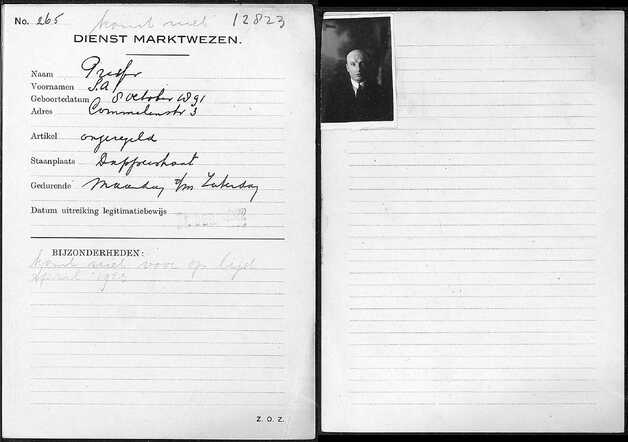 No. 265 komt niet 12823
DIENST MARKTWEZEN.
Naam
Voornamen S.A.
Geboortedatum 8 October 1891
Adres Commelinstr 3
Artikel ongeregeld
Staanplaats Dapperstraat
Gedurende Maandag t/m Zaterdag
Datum uitreiking legitimatiebewijs
BIJZONDERHEDEN:
komt niet voor op lijst
April
Z. O. Z.